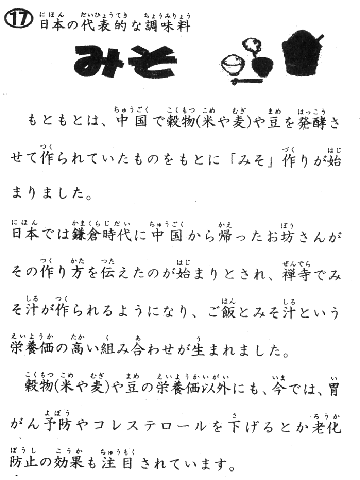 ⑰ 日本の代表的な調味料
みそ
もともとは、中国で穀物(米や麦)や豆を発酵さ
せて作られていたものをもとに「みそ」作りが始
まりました。
日本では鎌倉時代に中国から帰ったお坊さんが
その作り方を伝えたのが始まりとされ、禅寺でみ
そ汁が作られるようになり、ご飯とみそ汁という
栄養価の高い組み合わせが生まれました。
穀物(米や麦)や豆の栄養価以外にも、今では、胃
がん予防やコレステロールを下げるとか老化
防止の効果も注目されています。